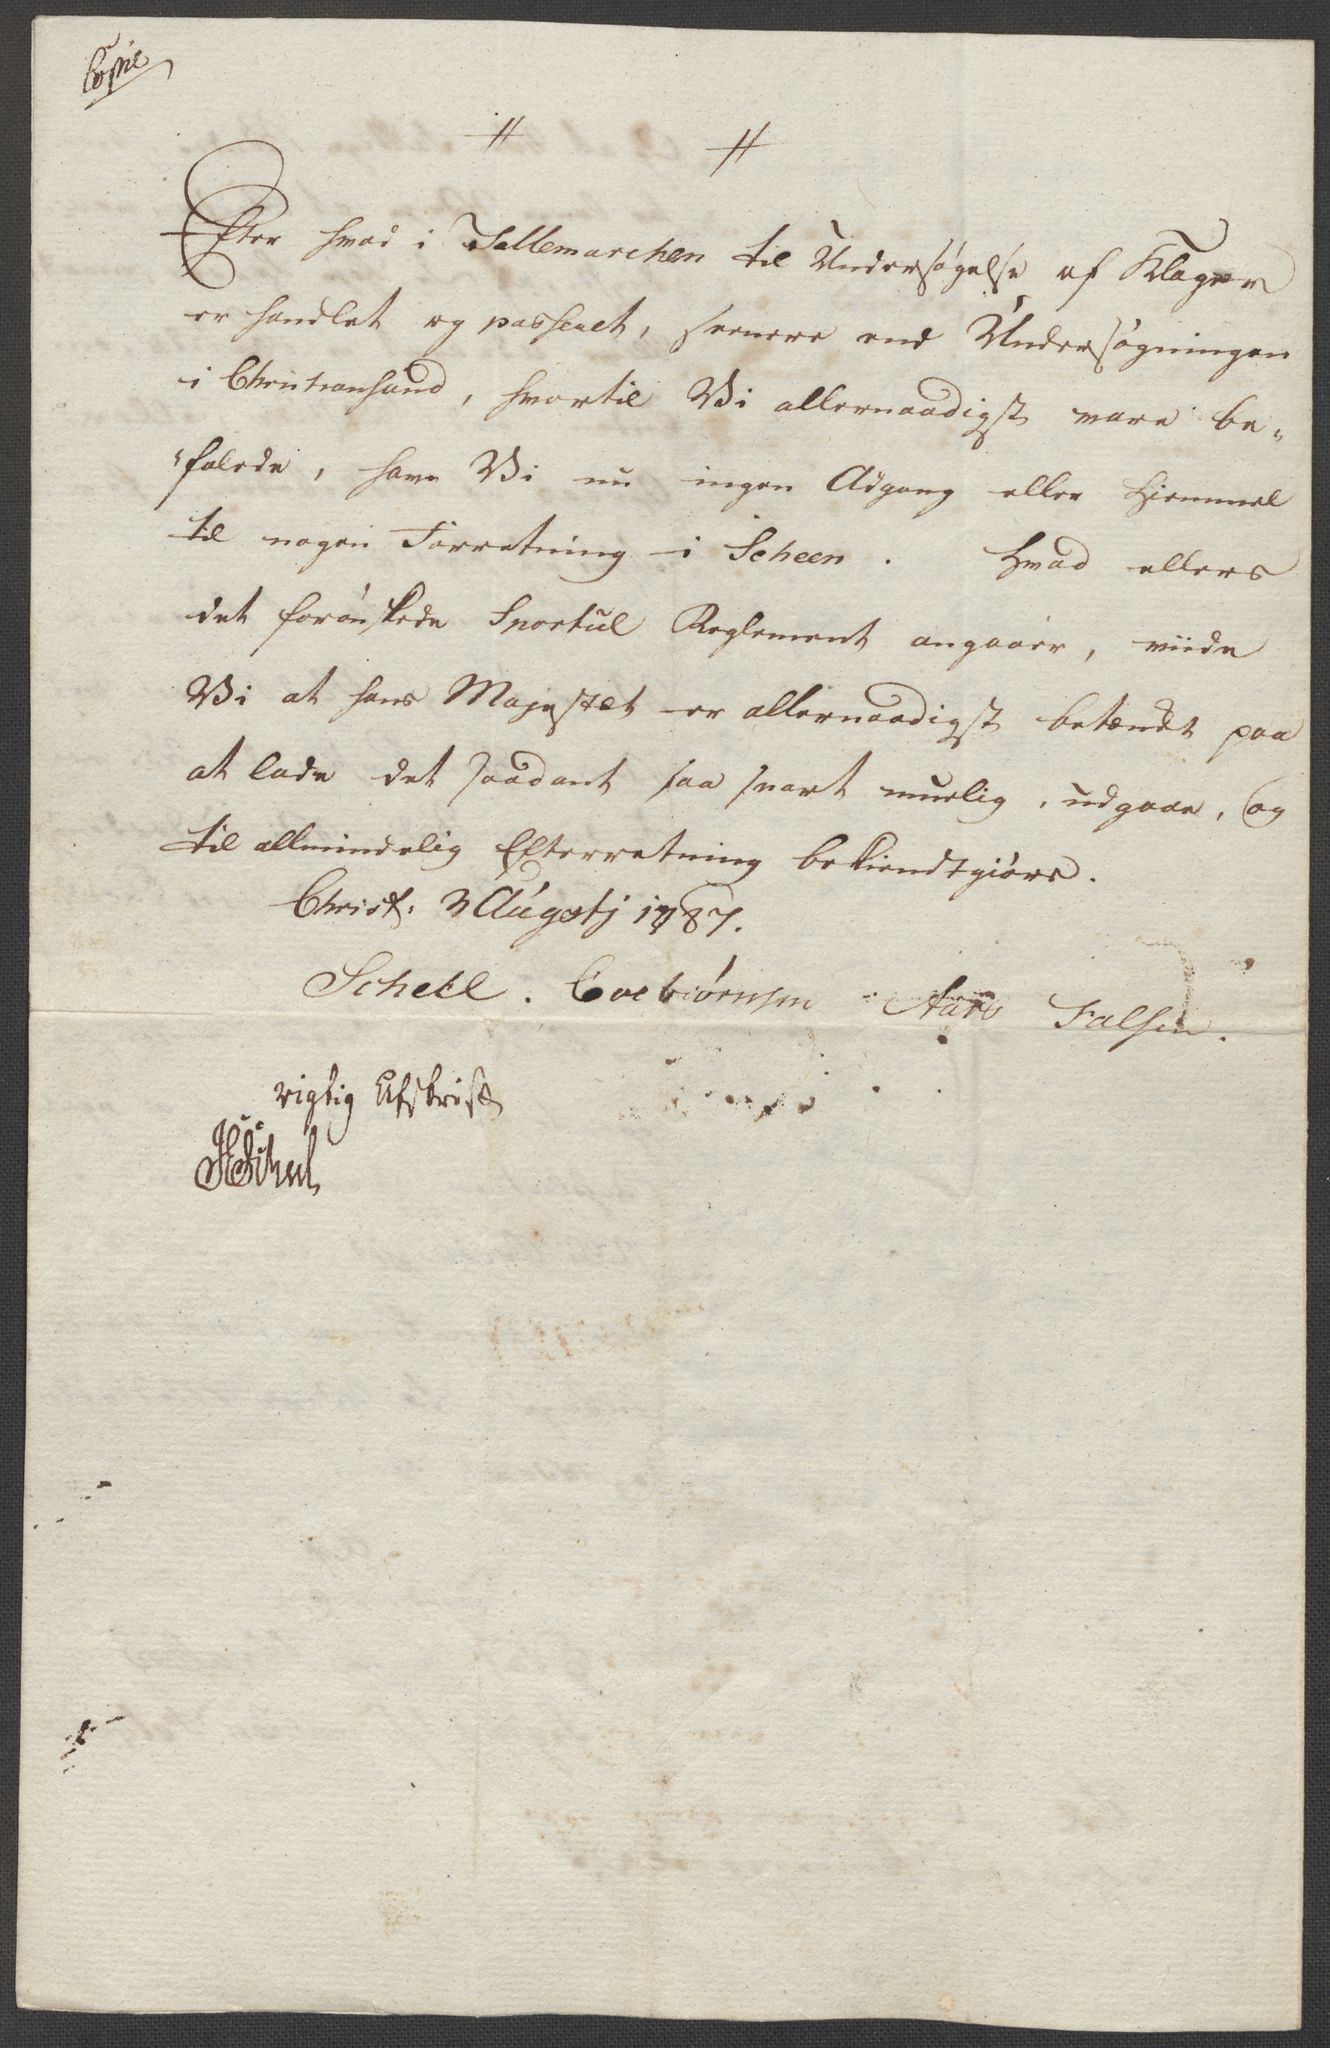 Copie
Efter hvad i Tellemarchen til Undersøgelse af Klager
er handlet og passeret, seenere end Undersøgningen
i Christiansand, hvortil Vi allernaadigst vare be-
falede, have Vi nu ingen Adgang eller Hiemmel
til nogen Forretning i Scheen. Hvad ellers
det forønskede Sportul Reglement angaaer, viide
Vi at hans Majestæt er allernaadigst betænkt paa
at lade det saadant saa snart muelig, udgaae, og
til allmindelig Efterretning bekiendtgiøre.
Christ: 3 Augustj 1787.
Scheel. Coebiørnsen Aars Falsen.
rigtig Afskrift